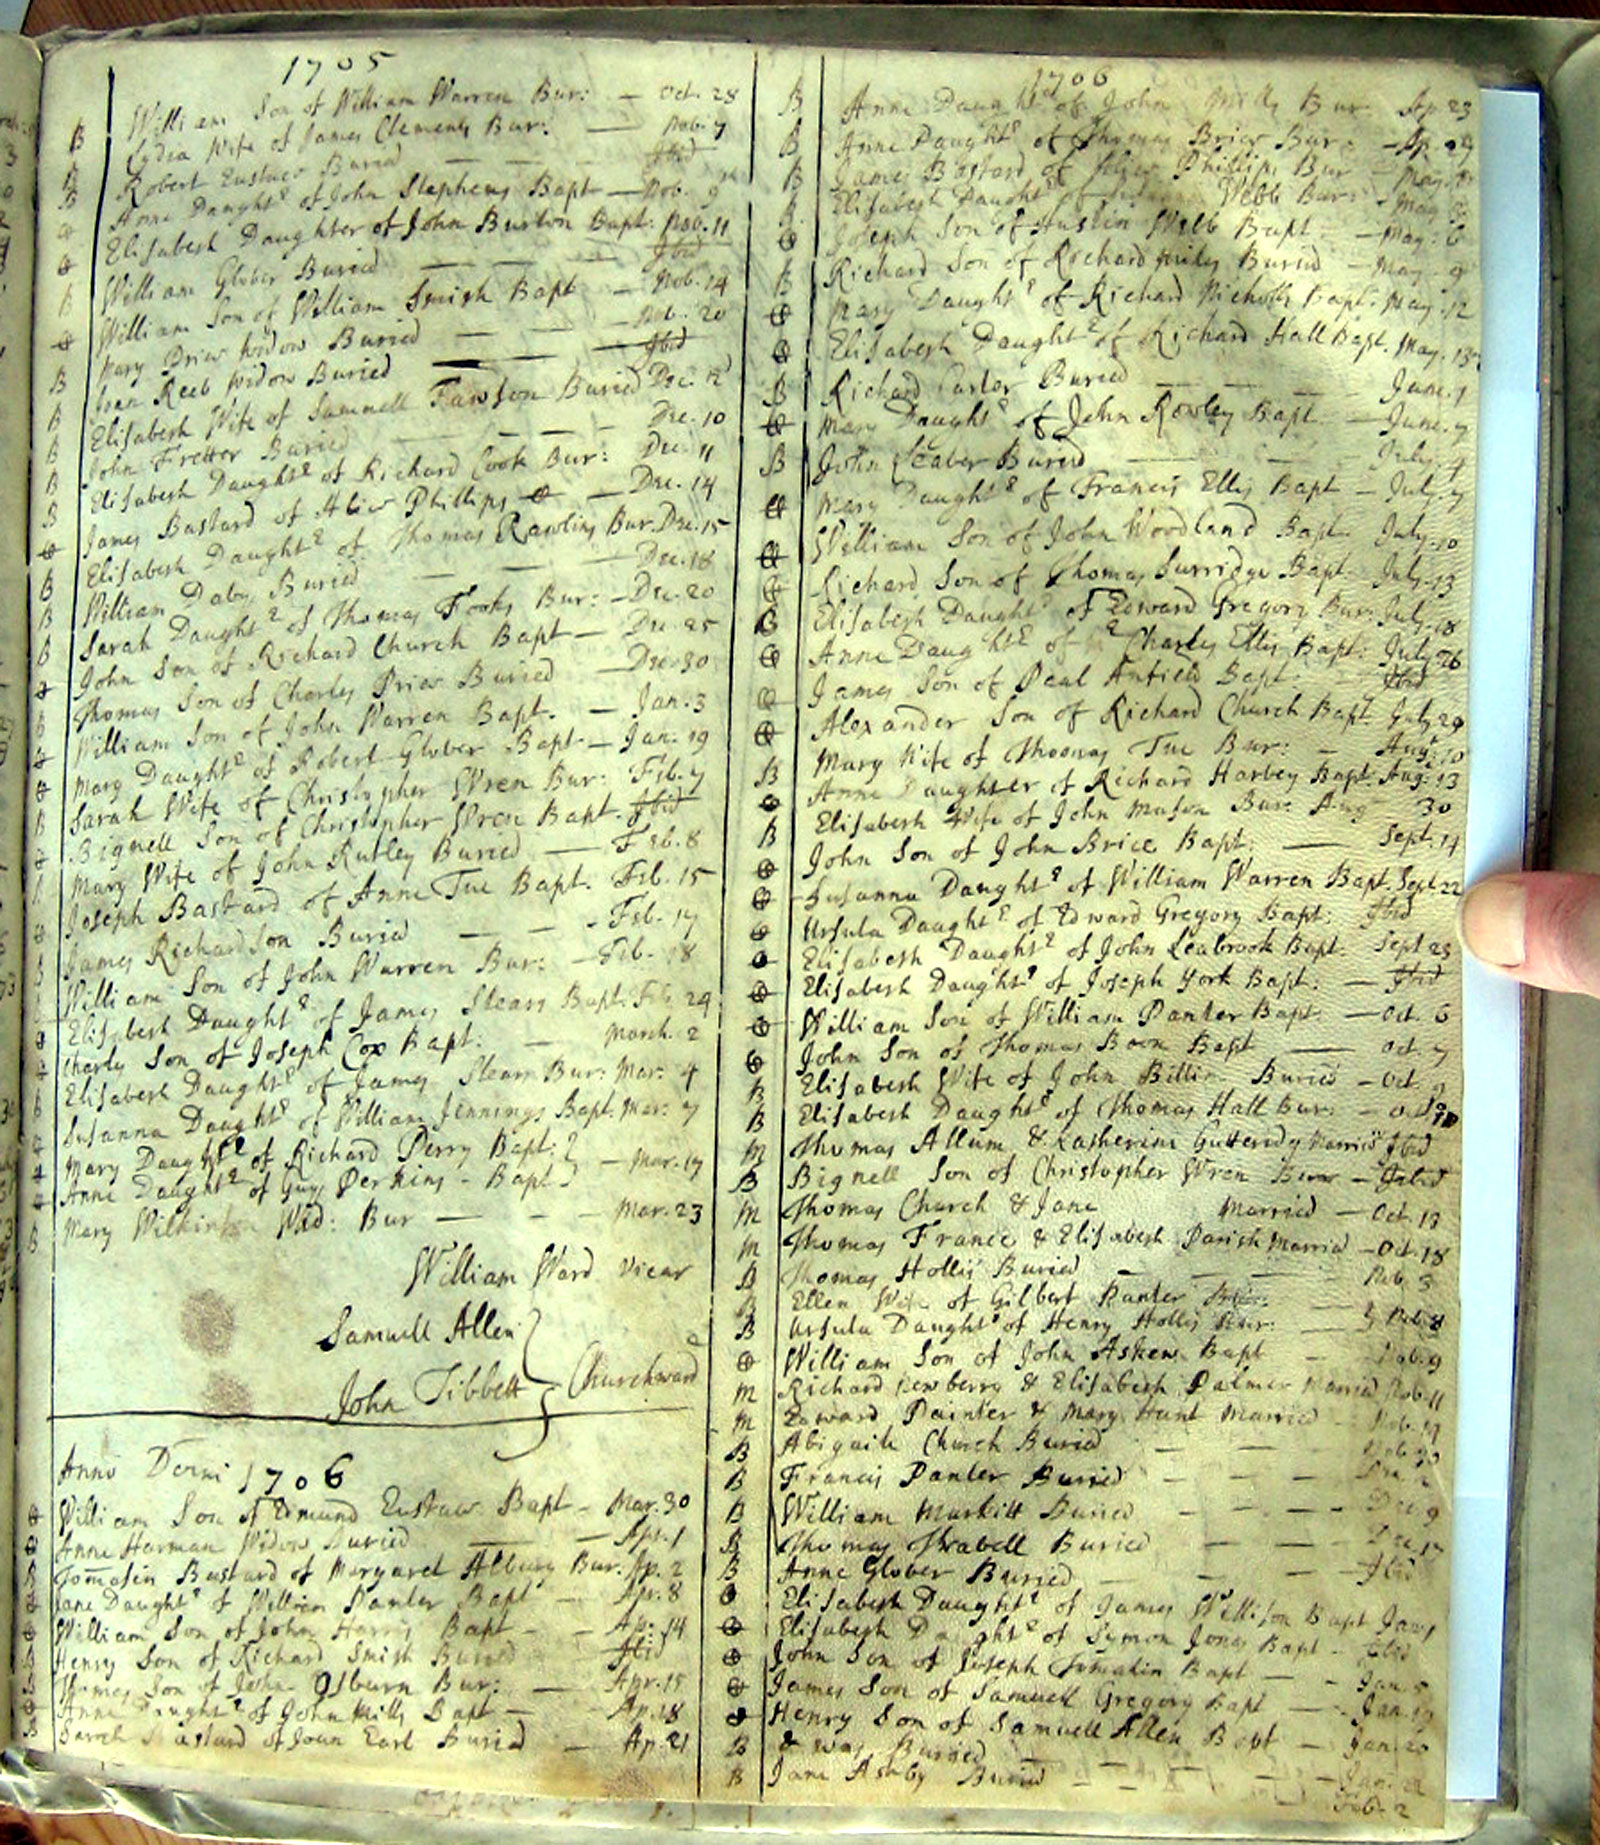 1705
William Son of William Warren Bur: — Oct. 28
B Lydia Wife of James Clements Bur: — Nob. 7
B Robert Eustace Buried — — — Ibid
B Anne Daught: of John Stephens Bapt — Nob. 9
Elisabeth Daughter of John Burton Bapt: Nob. 11
William Glober Buried — — — Ibid
B William Son of William Smith Bapt — Nob. 14
Mary Price Widow Buried — — Nob. 20
B Joan Reeb Widow Buried — Ibid
B Elisabeth Wife of Sammell Fawson Buried Dec. 2
B John Fretter Buried — — — Dec. 10
B Elisabeth Daught: of Richard Cook Bur: Dec. 11
B James Bastard of Alice Phillips — Dec. 14
Elisabeth Daught: of Thomas Rawlins Bur. Dec. 15
B William Daby Buried — — — Dec. 18
B Sarah Daught: of Thomas Fooks Bur: — Dec. 20
B John Son of Richard Church Bapt — Dec. 25
Thomas Son of Charles Price Buried — Dec. 30
B William Son of John Warren Bapt. — Jan. 3
Mary Daught: of Robert Glober Bapt — Jan: 19
Sarah Wife of Christopher Wren Bur: Feb. 7
B Bignell Son of Christopher Wren Bapt. Ibid
Mary Wife of John Rutley Buried — Feb. 8
Joseph Bastard of Anne Tue Bapt. Feb. 15
James Richardson Buried — — Feb. 17
B William Son of John Warren Bur: — Feb. 18
Elisabeth Daught: of James Stears Bapt: Feb. 24
Charles Son of Joseph Cox Bapt: — March. 2
Elisabeth Daught: of James Stears Bur: Mar: 4
Susanna Daught: of William Jennings Bapt. Mar: 7
Mary Daught: of Richard Perry Bapt: }
Anne Daught: of Guy Perkins - Bapt } — Mar. 17
B Mary Wilkinson Wid: Bur — — — Mar. 23
William Ward Vicar
Samuell Allen }
John Tibbett } Churchward
Anno Domi 1706
William Son of Edmund Eustace Bapt — Mar. 30
Anne Harman Widow Buried — Apr. 1
Tomasin Bastard of Margaret Albury Bur. Ap. 2
Jane Daught: of William Panter Bapt — Apr. 8
William Son of John Harris Bapt — Ap: 14
Henry Son of Richard Smith Buried — Ibid
Thomas Son of John Osburn Bur: — Apr. 15
Anne Daught: of John Mills Bapt — Ap. 18
Sarah Bastard of Joan Earl Buried — Ap. 21
1706
B Anne Daught: of John Mills Bur Ap. 23
B Anne Daught: of Thomas Price Bur: — Ap.
B James Bastard of Alice Phillips Bur — May.
B Elisabeth Daught: of Webb Bur: — May
Joseph Son of Austin Webb Bapt: — May: 6
B Richard Son of Richard Miles Buried — May. 9
Mary Daught: of Richard Nicholls Bapt: May. 12
Elisabeth Daught: of Richard Hall Bapt. May. 13
B Richard Carter Buried — — June. 1
Mary Daught: of John Rowley Bapt — June. 7
B John Seaber Buried — — July. 4
Mary Daught: of Francis Ellis Bapt — July. 7
William Son of John Woodland Bapt. July. 10
Richard Son of Thomas Surridge Bapt. July. 13
B Elisabeth Daught: of Edward Gregory Bur: July. 18
Anne Daught: of Charles Ellis Bapt: July 26
James Son of Paul Bapt: — Ibid
Alexander Son of Richard Church Bapt July 29
Mary Wife of Thomas Tue Bur: — Aug: 10
B Anne Daughter of Richard Harbey Bapt: Aug: 13
Elisabeth Wife of John Mason Bur: Aug 30
B John Son of John Brice Bapt: — Sept. 14
Susanna Daught: of William Warren Bapt. Sept. 22
Ursula Daught: of Edward Gregory Bapt: Ibid
Elisabeth Daught: of John Seabrook Bapt. Sept 23
Elisabeth Daught: of Joseph York Bapt: — Ibid
William Son of William Panter Bapt. — Oct. 6
John Son of Thomas Boon Bapt — Oct. 7
B Elisabeth Wife of John Billin Buried — Oct. 9
B Elisabeth Daught: of Thomas Hall Bur: — Oct. 10
M Thomas Allum & Katherine Gutteridg Married Ibid
B Bignell Son of Christopher Wren — Ibid
M Thomas Church & Jane Married — Oct. 13
M Thomas France & Elisabeth Parish Married — Oct. 18
B Thomas Hollis Buried — — Nob. 3
B Ellen Wife of Gilbert Panter
B Ursula Daught: of Henry Hollis Bur: — Nob. 8
William Son of John Askew Bapt — Nob. 9
M Richard Newberry & Elisabeth Palmer Married Nob. 11
M Edward Painter & Mary Hunt Married — Nob. 17
B Abigaile Church Buried — — Nob.
B Francis Panter Buried — — — Dec.
B William Markitt Buried — — — Dec. 9
B Thomas Thrabell Buried — — — Dec. 17
B Anne Glober Buried — — — Ibid
Elisabeth Daught: of James Willison Bapt Jan. 1
Elisabeth Daught: of Symon Jones Bapt — Ibid
John Son of Joseph Tomakin Bapt — Jan. 5
James Son of Samuell Gregory Bapt — Jan. 19
Henry Son of Samuell Allen Bapt — Jan. 20
B & was Buried — — Jan. 22
B Jane Ashby Buried — — — Feb. 2